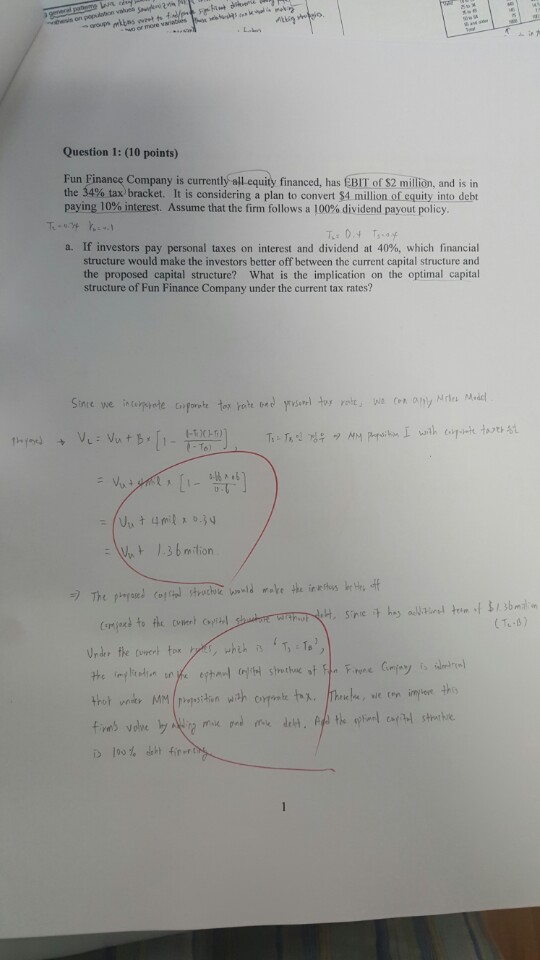 a general patterns
Question 1: (10 points)
Fun Finance Company is currently all equity financed, has EBIT of $2 million, and is in
the 34% tax bracket. It is considering a plan to convert $4 million of equity into debt
paying 10% interest. Assume that the firm follows a 100% dividend payout policy.
a. If investors pay personal taxes on interest and dividend at 40%, which financial
structure would make the investors better off between the current capital structure and
the proposed capital structure? What is the implication on the optimal capital
structure of Fun Finance Company under the current tax rates?
Since we incorporate corporate tax rate and personal tax rate, we can apply Miller Model
proposed → VL = Vu + B × [1 - (1-Tc)(1-Ts) / (1-TB)], Ts = TB → MM proposition I with corporate taxes
= Vu + 4 mil × [1 - 0.66 × 0.6 / 0.6]
= Vu + 4 mil × 0.34
= Vu + 1.36 million
⇒ The proposed capital structure would make the investors better off
compared to the current capital structure without debt, since it has additional term of $1.36 million
(Tc·B)
Under the current tax rates, which is 'Ts = TB',
the implication on the optimal capital structure of Fun Finance Company is identical
that under MM proposition with corporate tax. Therefore, we can improve this
firm's value by adding more and more debt. And the optimal capital structure
is 100% debt financing
1